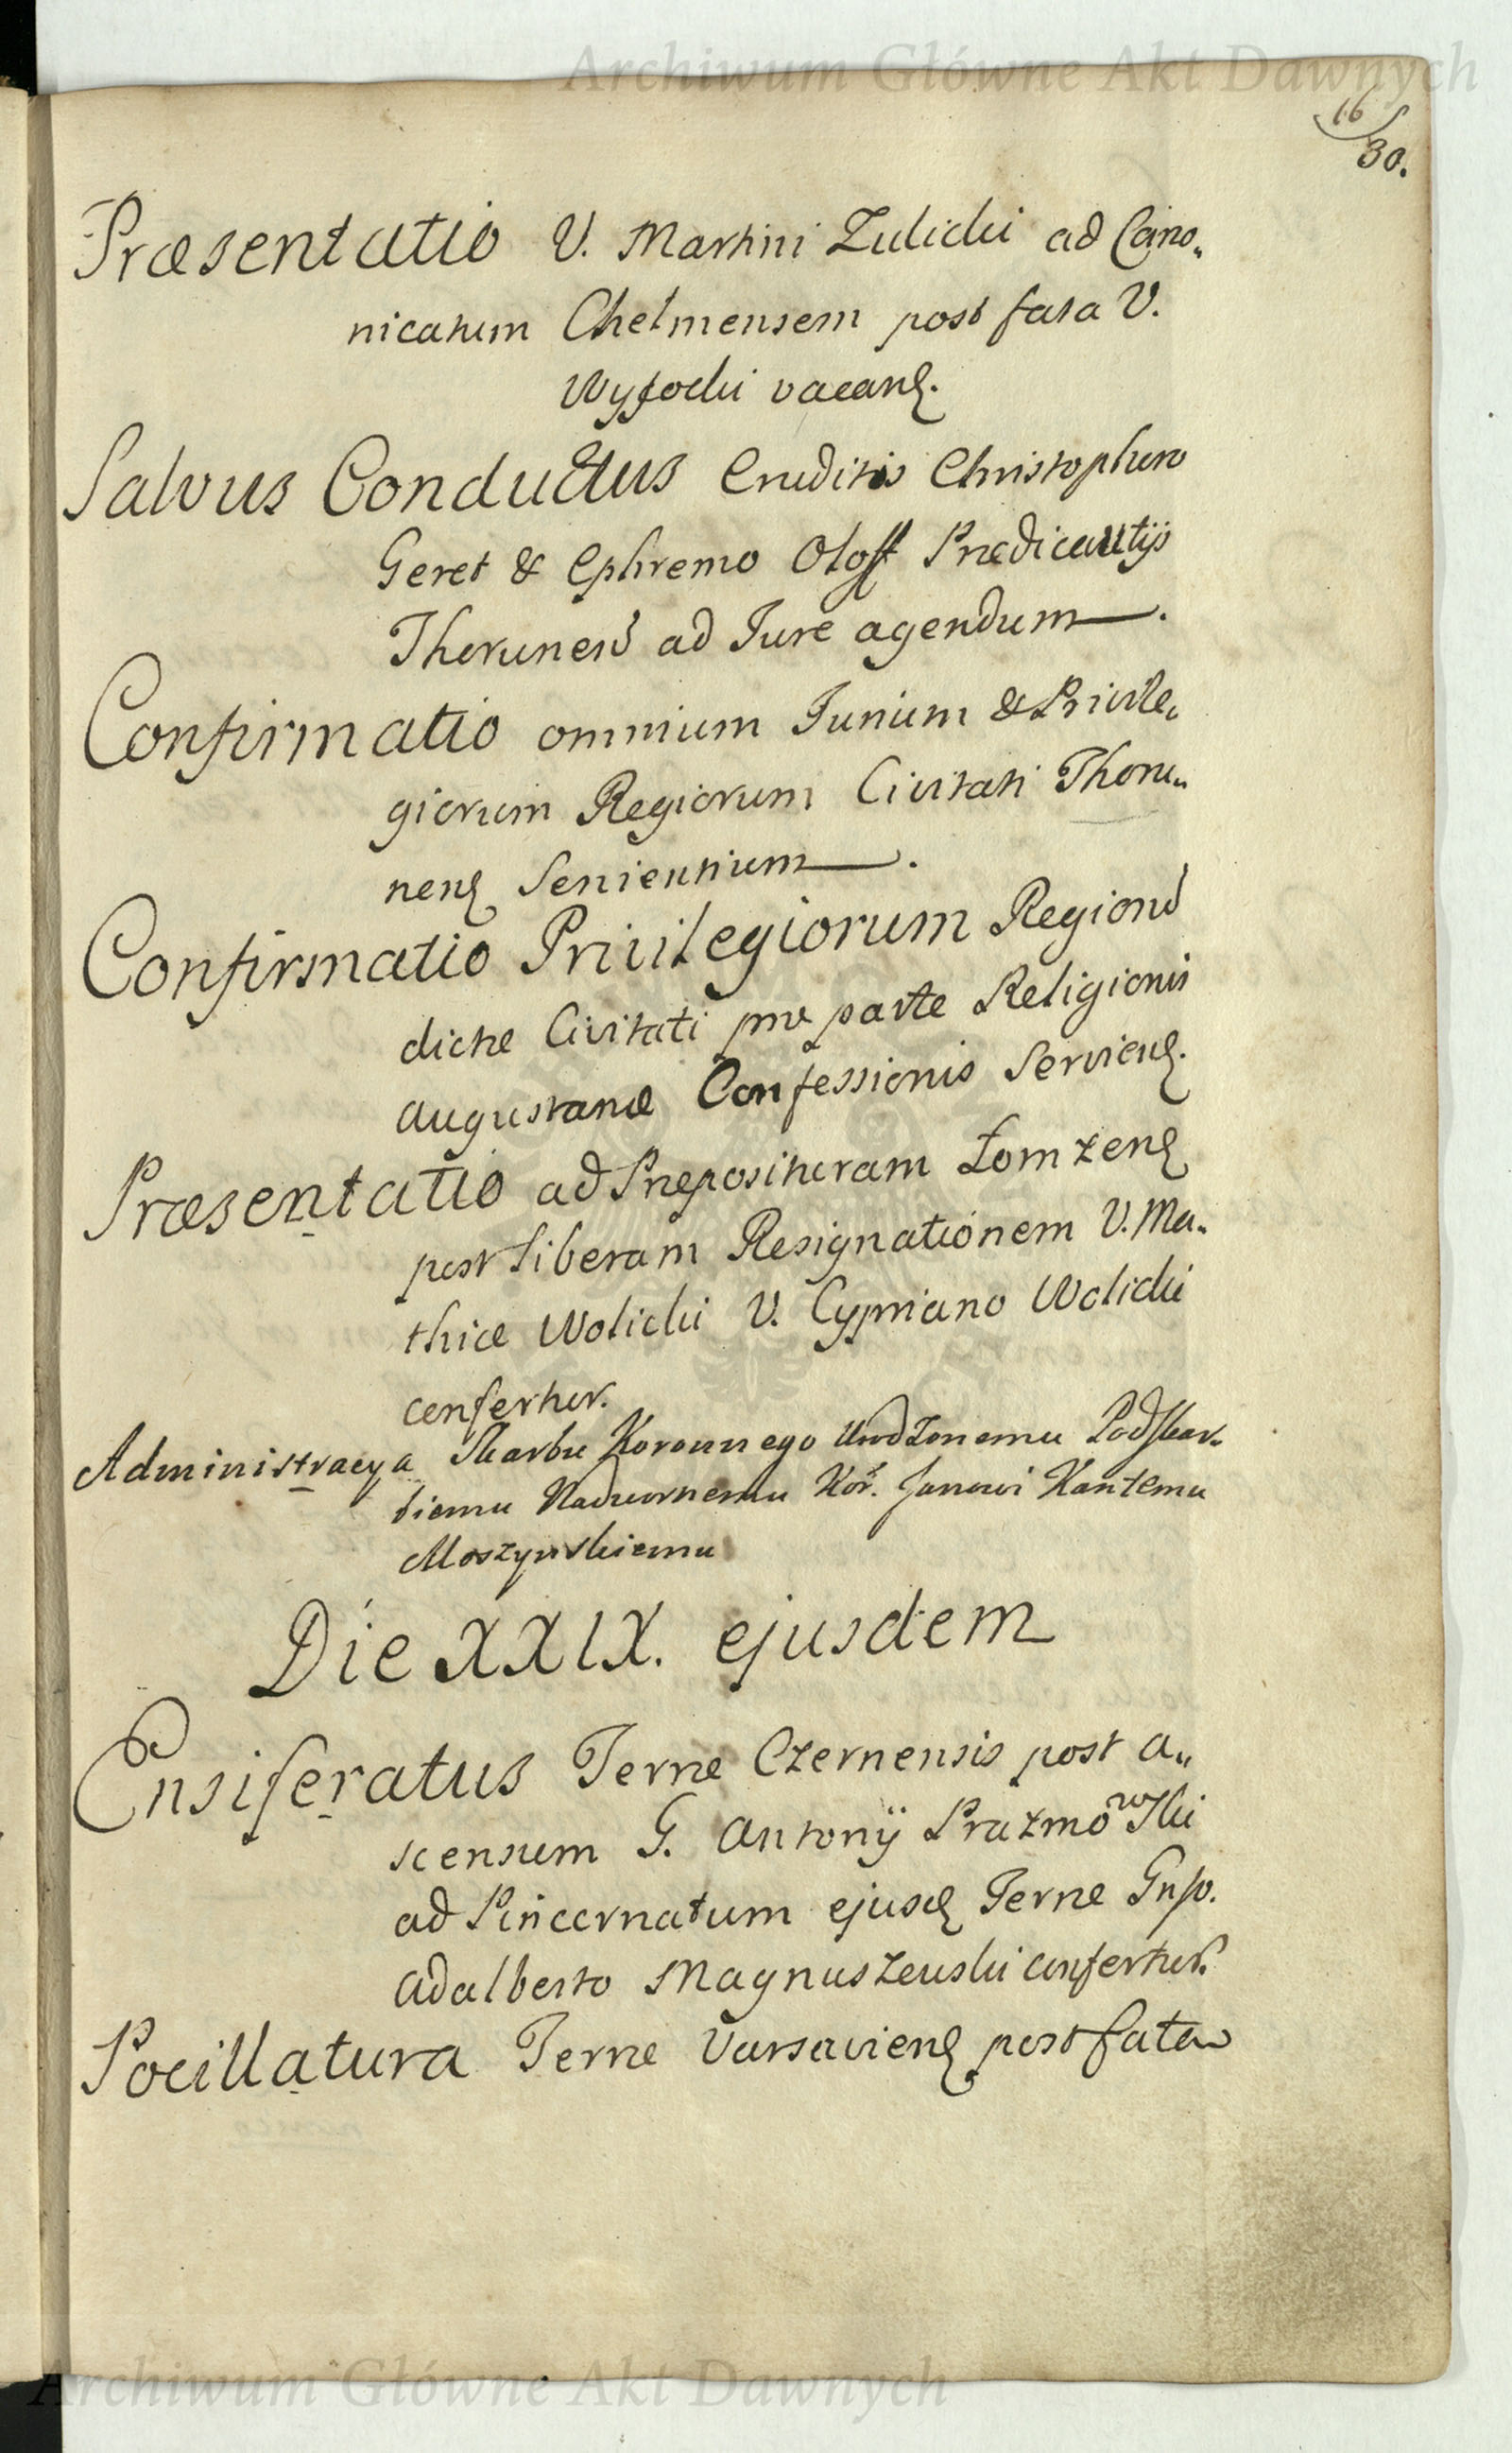 Archiwum Główne Akt Dawnych
16
30.
Præsentatio V. Martini Zulicki ad Cano„
nicatum Chełmensem post fata V.
Wysocki vacanę.
Salvus Conductus Eruditis Christophoro
Geret & Ephremo Oloff Prædicantijs
Thorunens ad Jure agendum.
Confirmatio omnium Jurium & Privile„
giorum Regiorum Civitati Thoru„
nenę Servientium.
Confirmatio Privilegiorum Regiorum
dictæ Civitati pro parte Religionis
Augustanæ Confessionis Servienę.
Præsentatio ad Præposituram Łomzenę
post liberam Resignationem V. Ma„
thiæ Wolicki V. Cypriano Wolicki
confertur.
Administracya Skarbu Koronnego Urodzonemu Podskar„
biemu Nadwornemu Kor. Janowi Kantemu
Moszynskiemu
Die XXIX. ejusdem
Ensiferatus Terræ Czernensis post a„
scensum G. Antonij Prazmowski
ad Pincernatum ejusdę Terræ Gnso.
Adalberto Magnuszewski confertur.
Pocillatura Terræ Varsavienę post fata
Archiwum Główne Akt Dawnych